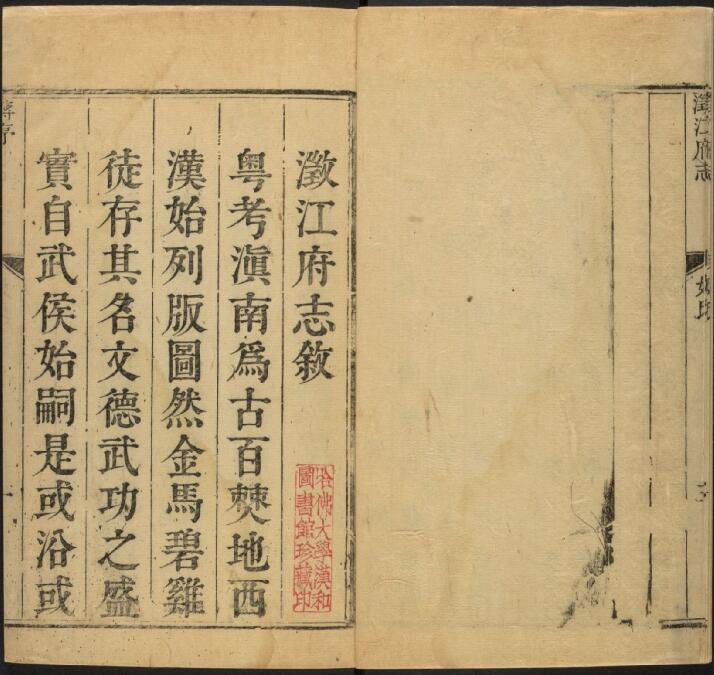 澂江府志
澂江府志敘
粤考滇南爲古百僰地西
漢始列版圖然金馬碧雞
徒存其名文德武功之盛
實自武侯始嗣是或沿或
哈佛大學漢和
圖書館珍藏印
序
一